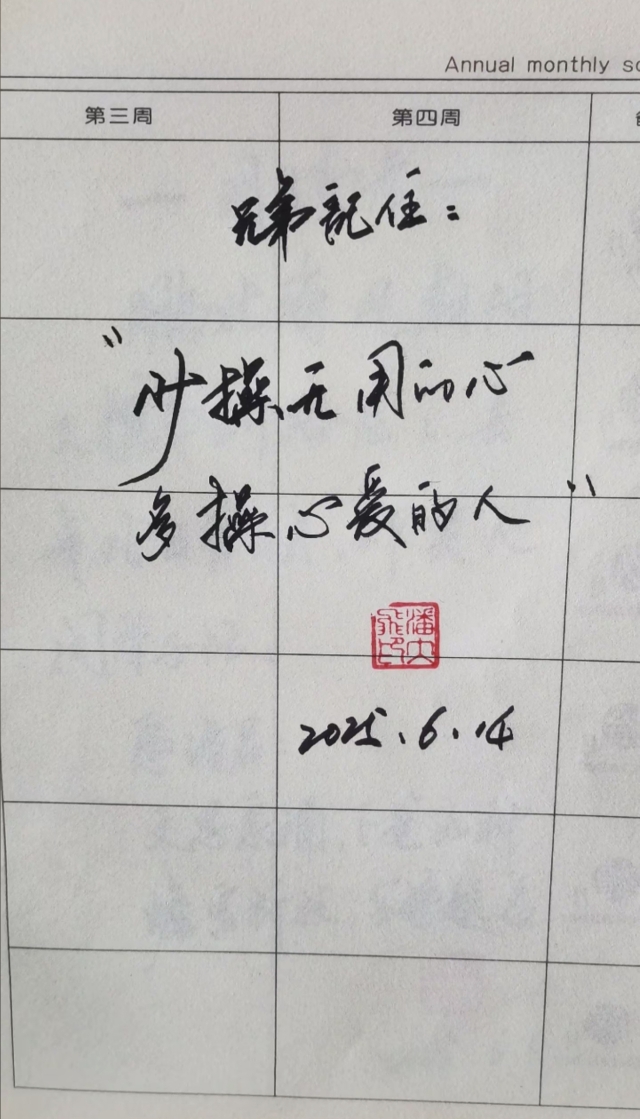 Annual monthly
第三周 第四周
兄弟记住：
“少操无用的心
多操心爱的人”
2025.6.14